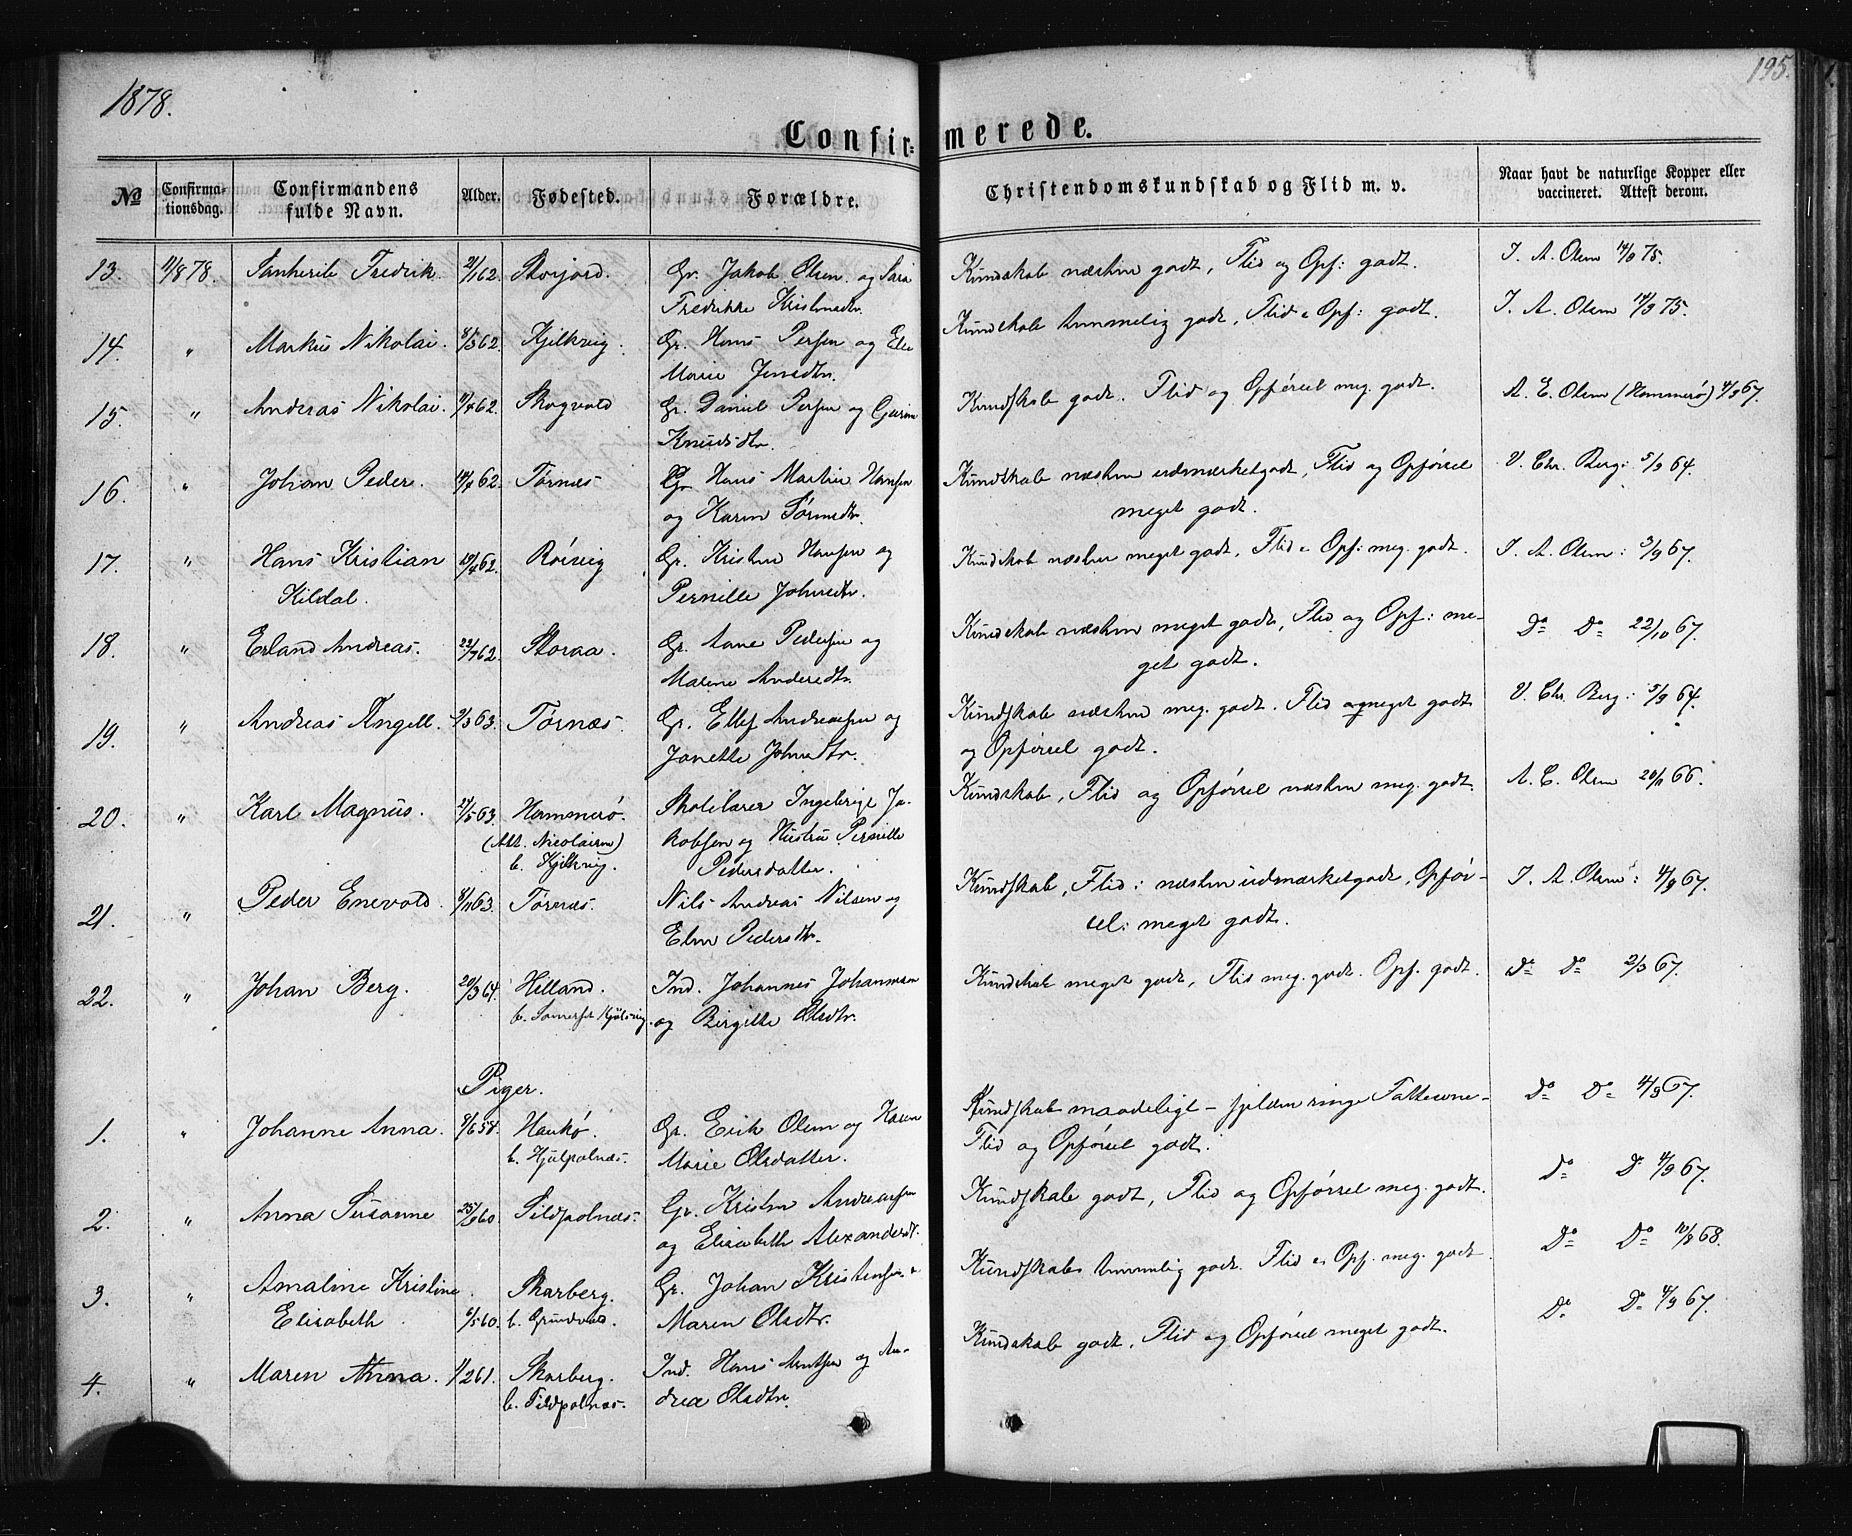 1878.
195.
Confir- merede.
No
Confirma-
tionsdag.
Confirmandens
fulde Navn.
Alder.
Fødested.
Forældre.
Christendomskundskab og Flid m. v.
Naar havt de naturlige Kopper eller
vaccineret. Attest derom.
13. 11/8 78. Fredrik 2/1 62. Storjord. Gr. Jakob Olsen og Sara Kundskab næsten godt, Flid og Opf: godt. J. A. Olsen 14/9 75.
Fredrikke
14. " Markus Nikolai. 8/3 62. Kjelkvig. Gr. Hans Persen og Kundskab temmelig godt, Flid o Opf: godt. J. A. Olsen 14/9 75.
Marie Jensdtr.
15. " Andreas Nikolai. 62. Skogvold Gr. Daniel Persen og Kundskab godt. Flid og Opførsel meg. godt. A. E. Olsen (Hammerø) 4/9 67.
Knudsdtr
16. " Johan Peder. 62. Tørnæs Gr. Hans Martin Hansen Kundskab næsten udmærketgodt, Flid og Opførsel V. Chr. Berg: 5/9 64.
og Karen
meget godt.
17. " Hans Kristian 62. Røivig Gr. Kristen Hansen og Kundskab næsten meget godt, Flid o Opf: meg. godt. J. A. Olsen: 3/9 67.
Kildal.
Pernille Johnsdtr.
18. " Erland Andreas. 22/7 62. Storaa. Gr. Aane Pedersen og Kundskab næsten meget godt, Flid og Opf: me- Do Do 22/10 67.
Malene
get godt.
19. " Andreas Angell. 2/3 63. Tørnæs. Gr. Ellef Andreassen og Kundskab næsten meg. godt. Flid meget godt V. Chr. Berg: 5/9 64.
Janette Johnsdtr.
og Opførsel godt.
20. " Karl Magnus. 2/5 63. Hammerø. Skolelærer Ingebrigt Ja- Kundskab, Flid og Opførsel næsten meg. godt A. E. Olsen 66.
(Att. Nicolaisen)
kobsen og Hustru Pernille
b. Kjelkvig.
Pedersdatter.
21. " Peder Enevold. 8/11 63. Tørnæs. Nils Andreas Nilsen og Kundskab, Flid: næsten udmærketgodt, Opfør- J. A. Olsen: 4/9 67.
Elen Pedersdtr.
sel: meget godt.
22. " Johan Berg. 20/3 64. Helland. Ind. Johannes Johannesen Kundskab meget godt, Flid meg. godt. Opf. godt. Do Do 2/3 67.
og Birgitte Olsdtr.
Piger.
1. " Johanne Anna. 58. Haukø. Gr. Erik Olsen og Karen Kundskab maadeligt - sjelden ringe Fatteevne- Do Do 4/9 67.
b. Hjulpolnæs.
Marie Olsdatter.
Flid og Opførsel godt.
2. " Anna Susanne 60. Sildpolnæs. Gr. Kristen Andreassen Kundskab godt, Flid og Opførsel meg. godt. Do Do 4/9 67.
og Elisabeth Alexandersdt.
3. " Amaline Kristine Skarberg. Gr. Johan Kristensen Kundskab temmelig godt. Flid o Opf. meg. godt. Do Do 10/8 68.
Elisabeth 6/5 60. b. Grundvad. Maren Olsdtr.
4. " Maren Anna. 1/2 61. Skarberg. Ind. Hans Arntsen og An- Kundskab godt, Flid og Opførsel meget godt. Do Do 4/9 67.
b. Sildpolnæs.
drea Olsdtr.